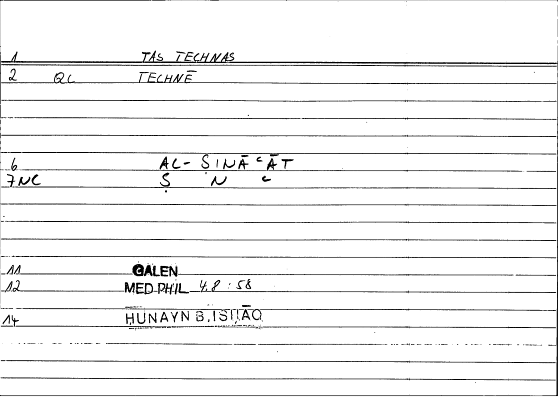 1 TAS TECHNAS
2 QL TECHNĒ
6 AL-ṢINĀʿĀT
7NC Ṣ N ʿ
11 GALEN
12 MED PHIL 4.8:58
14 HUNAYN B.ISḤĀQ